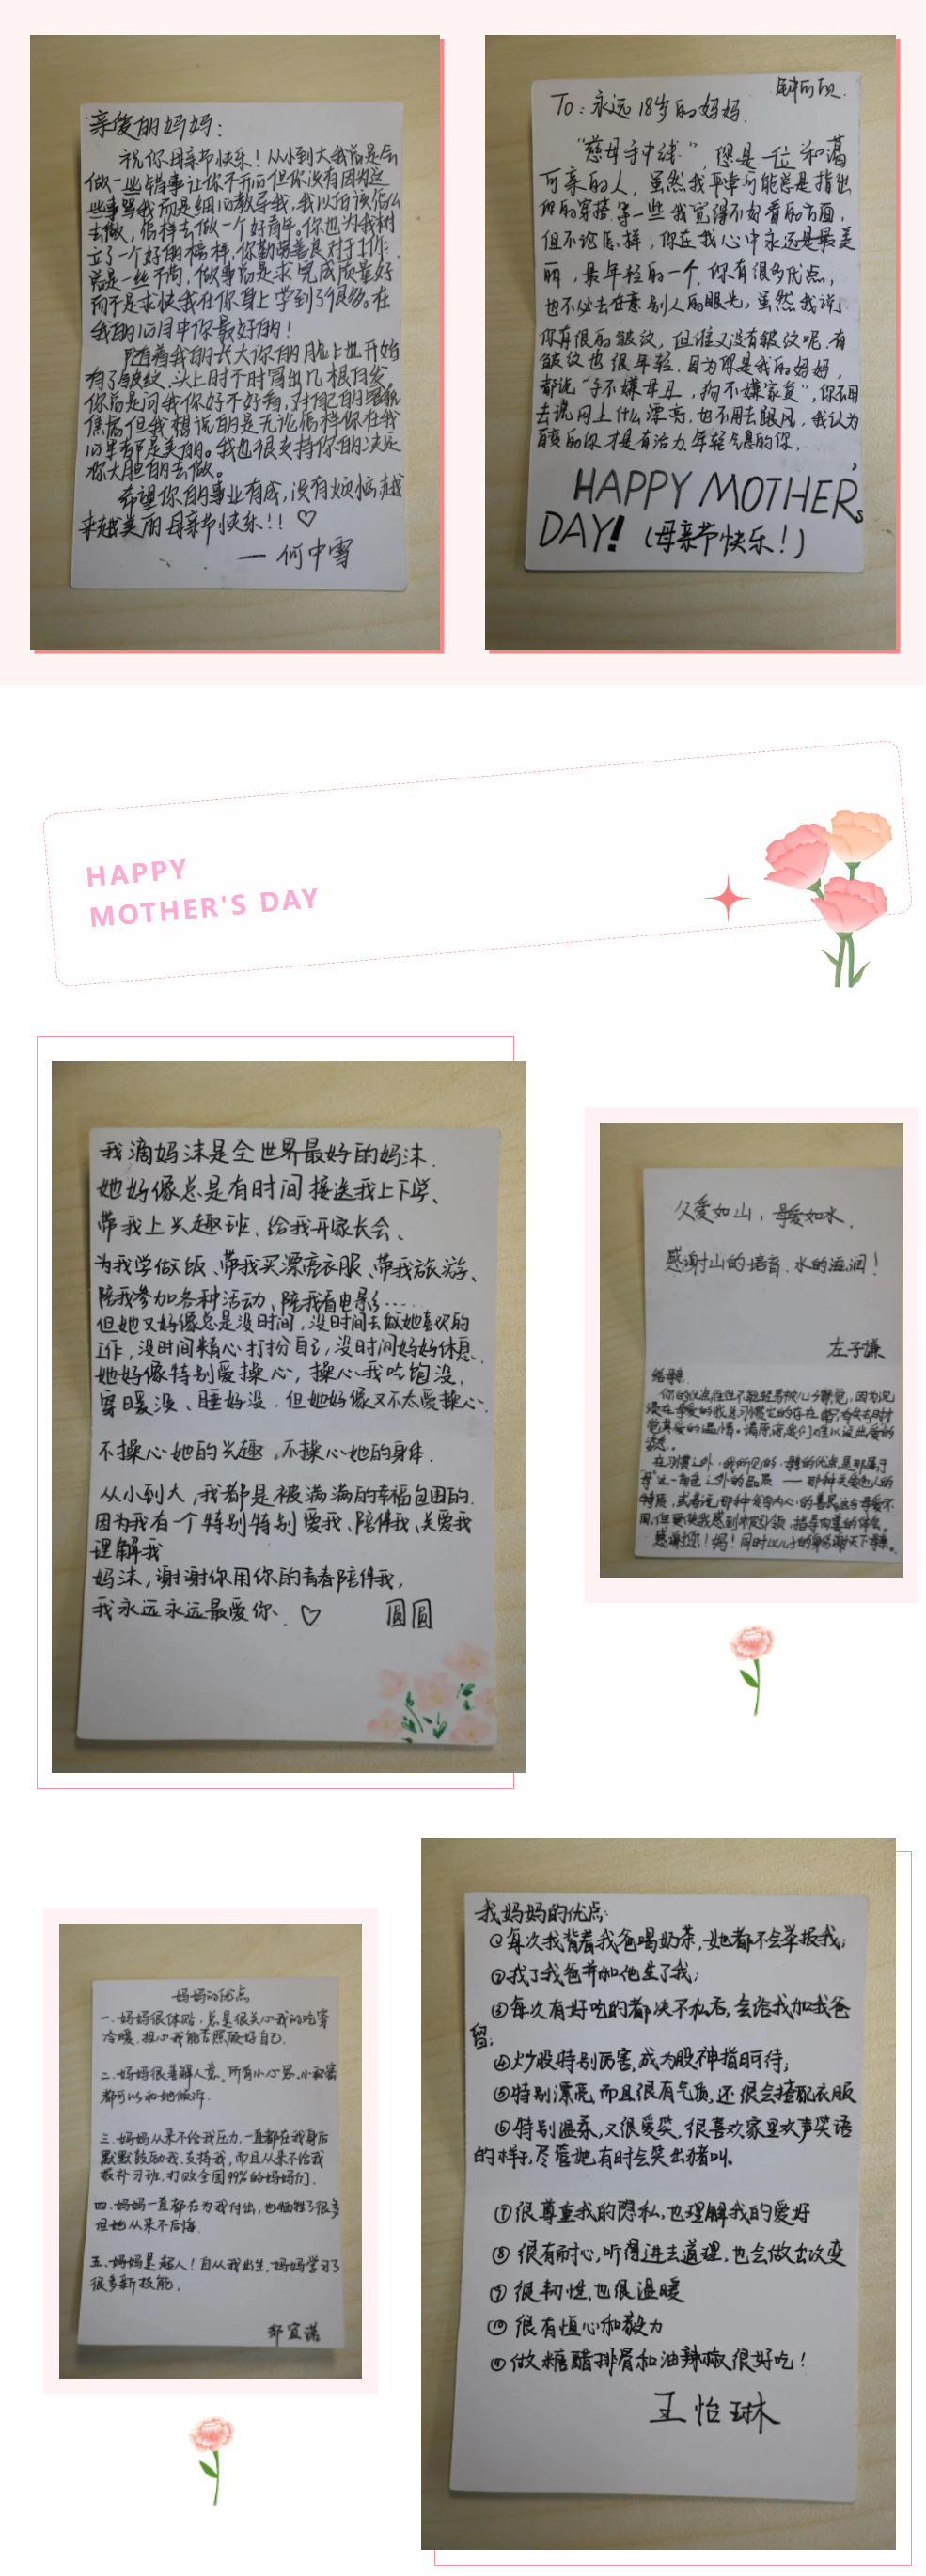 亲爱的妈妈：
祝你母亲节快乐！从小到大我总是会
做一些错事让你不开心但你没有因为这
些事骂我而是细心教导我，我以后该怎么
去做，怎样去做一个好青年。你也为我树
立了一个好的榜样，你勤劳善良对于工作
总是一丝不苟，做事总是求完成质量好
而不是求快我在你身上学到了很多。在
我的心目中你最好的！
随着我的长大你的脸上也开始
有了皱纹、头上时不时冒出几根白发
你总是问我你好不好看，对自己的
焦虑但我想说的是无论怎样你在我
心里都是美的。我也很支持你的决定
你大胆的去做。
希望你的事业有成，没有烦恼越
来越美丽母亲节快乐！！♡
— 何中雪
To：永远18岁的妈妈
“慈母手中线”，您是一位和蔼
可亲的人，虽然我平常可能总是指出
你的穿搭等一些我觉得不好看的方面，
但不论怎样，你在我心中永远是最美
丽，最年轻的一个，你有很多优点，
也不必去在意别人的眼光，虽然我说
你有很的皱纹，但谁又没有皱纹呢，有
皱纹也很年轻，因为你是我的妈妈，
都说“子不嫌母丑，狗不嫌家贫”，你不用
去说网上什么漂亮，也不用去跟风，我认为
真的你才是有活力年轻气息的你，
HAPPY MOTHER's
DAY!（母亲节快乐！）
HAPPY
MOTHER'S DAY
我滴妈沫是全世界最好的妈沫.
她好像总是有时间接送我上下学、
带我上兴趣班、给我开家长会、
为我学做饭、带我买漂亮衣服、带我旅游、
陪我参加各种活动、陪我看电影……
但她又好像总是没时间，没时间去做她喜欢的
工作，没时间精心打扮自己，没时间好好休息.
她好像特别爱操心，操心我吃饱没，
穿暖没、睡好没．但她好像又不太爱操心.
不操心她的兴趣，不操心她的身体.
从小到大，我都是被满满的幸福包围的.
因为我有一个特别特别爱我、陪伴我、关爱我
理解我
妈沫，谢谢你用你的青春陪伴我，
我永远永远最爱你、♡ 圆圆
父爱如山，母爱如水.
感谢山的培育．水的滋润！
左子谦
给母亲
你的优点往往不能轻易被儿子察觉，因为沉
浸在母爱的我总习惯它的存在
觉其爱的温情。请原谅我们难以说出爱的
姿态。
在习惯之外，我所见的，母亲的优点是那属于
“母”这一角色之外的品质 —— 那种天赋也人的
特质，或者说，那种发自内心的善良
感谢您！妈！同时以儿子的身份谢天下母亲。
妈妈的优点
一．妈妈很体贴．总是很关心我的吃穿
冷暖．担心我能否照顾好自己.
二．妈妈很善解人意．所有小心思．小秘密
都可以和她倾诉．
三．妈妈从来不给我压力，一直都在我身后
默默鼓励我．支持我，而且从来不给我
报补习班，打败全国99%的妈妈们．
四．妈妈一直都在为我付出，也牺牲了很多
但她从来不后悔．
五．妈妈是超人！自从我出生，妈妈学习了
很多新技能．
邹宜诺
我妈妈的优点：
①每次我背着我爸喝奶茶，她都不会举报我；
②找了我爸并和他生了我；
③每次有好吃的都决不私吞，会给我和我爸
留；
④炒股特别厉害，成为股神指日可待；
⑤特别漂亮，而且很有气质，还很会搭配衣服
⑥特别温柔，又很爱笑，很喜欢家里欢声笑语
的样子，尽管她有时会笑出猪叫．
⑦很尊重我的隐私，也理解我的爱好
⑧很有耐心，听得进去道理，也会做出改变
⑨很韧性，也很温暖
⑩很有恒心和毅力
⑪做糖醋排骨和油辣椒很好吃！
王怡琳